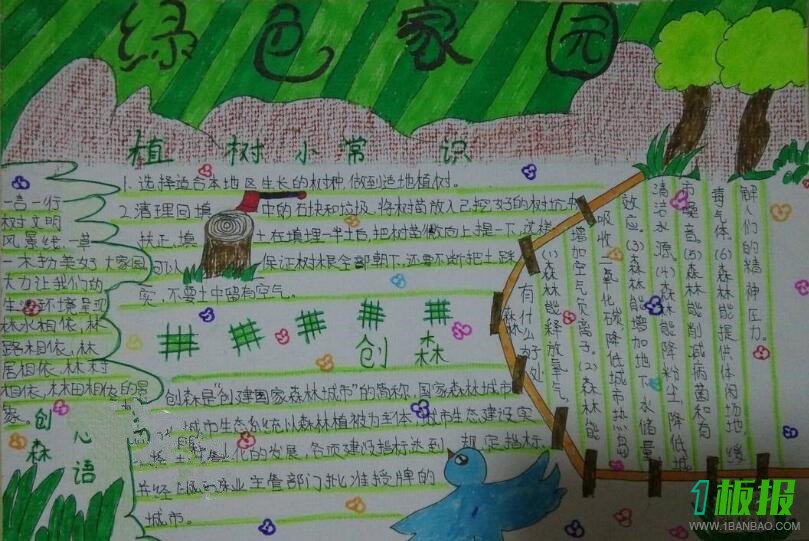 绿色家园
植树小常识
1.选择适合本地区生长的树种,做到适地植树。
2.清理回填 中的石块和垃圾,将树苗放入已挖好的树坑中
扶正,填 土在填埋一半时,把树苗微向上提一下,这样
可以 保证树根全部朝下,还要不断把土踩
实,不要土中留有空气。
一言一行
树文明
风景线,一草
一木扮美好大家园
大力让我们的
生活环境呈现
林水相依,林
路相依,林
居相依,林村
相依,林田相依的国
家。
创森
心语
创森
创森是“创建国家森林城市”的简称,国家森林城市
城市生态系统以森林植被为主体,城市生态建设实
化的发展,各项建设指标达到 规定指标
并经 林业主管部门批准授牌的
城市。
森林
有什么好处
(1)森林能释放氧气,
增加空气负离子。(2)森林能
吸收二氧化碳,降低城市热岛
效应。(3)森林能增加地下水储量,
清洁水源。(4)森林能降粉尘,降低城
市噪音。(5)森林能削减病菌和有
毒气体。(6)森林能提供休闲场地,缓
解人们的精神压力。
1板报
WWW.1BANBAO.COM